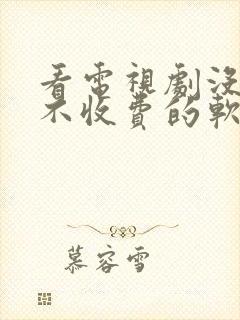 看電視劇沒
不收費的軟
慕容雪